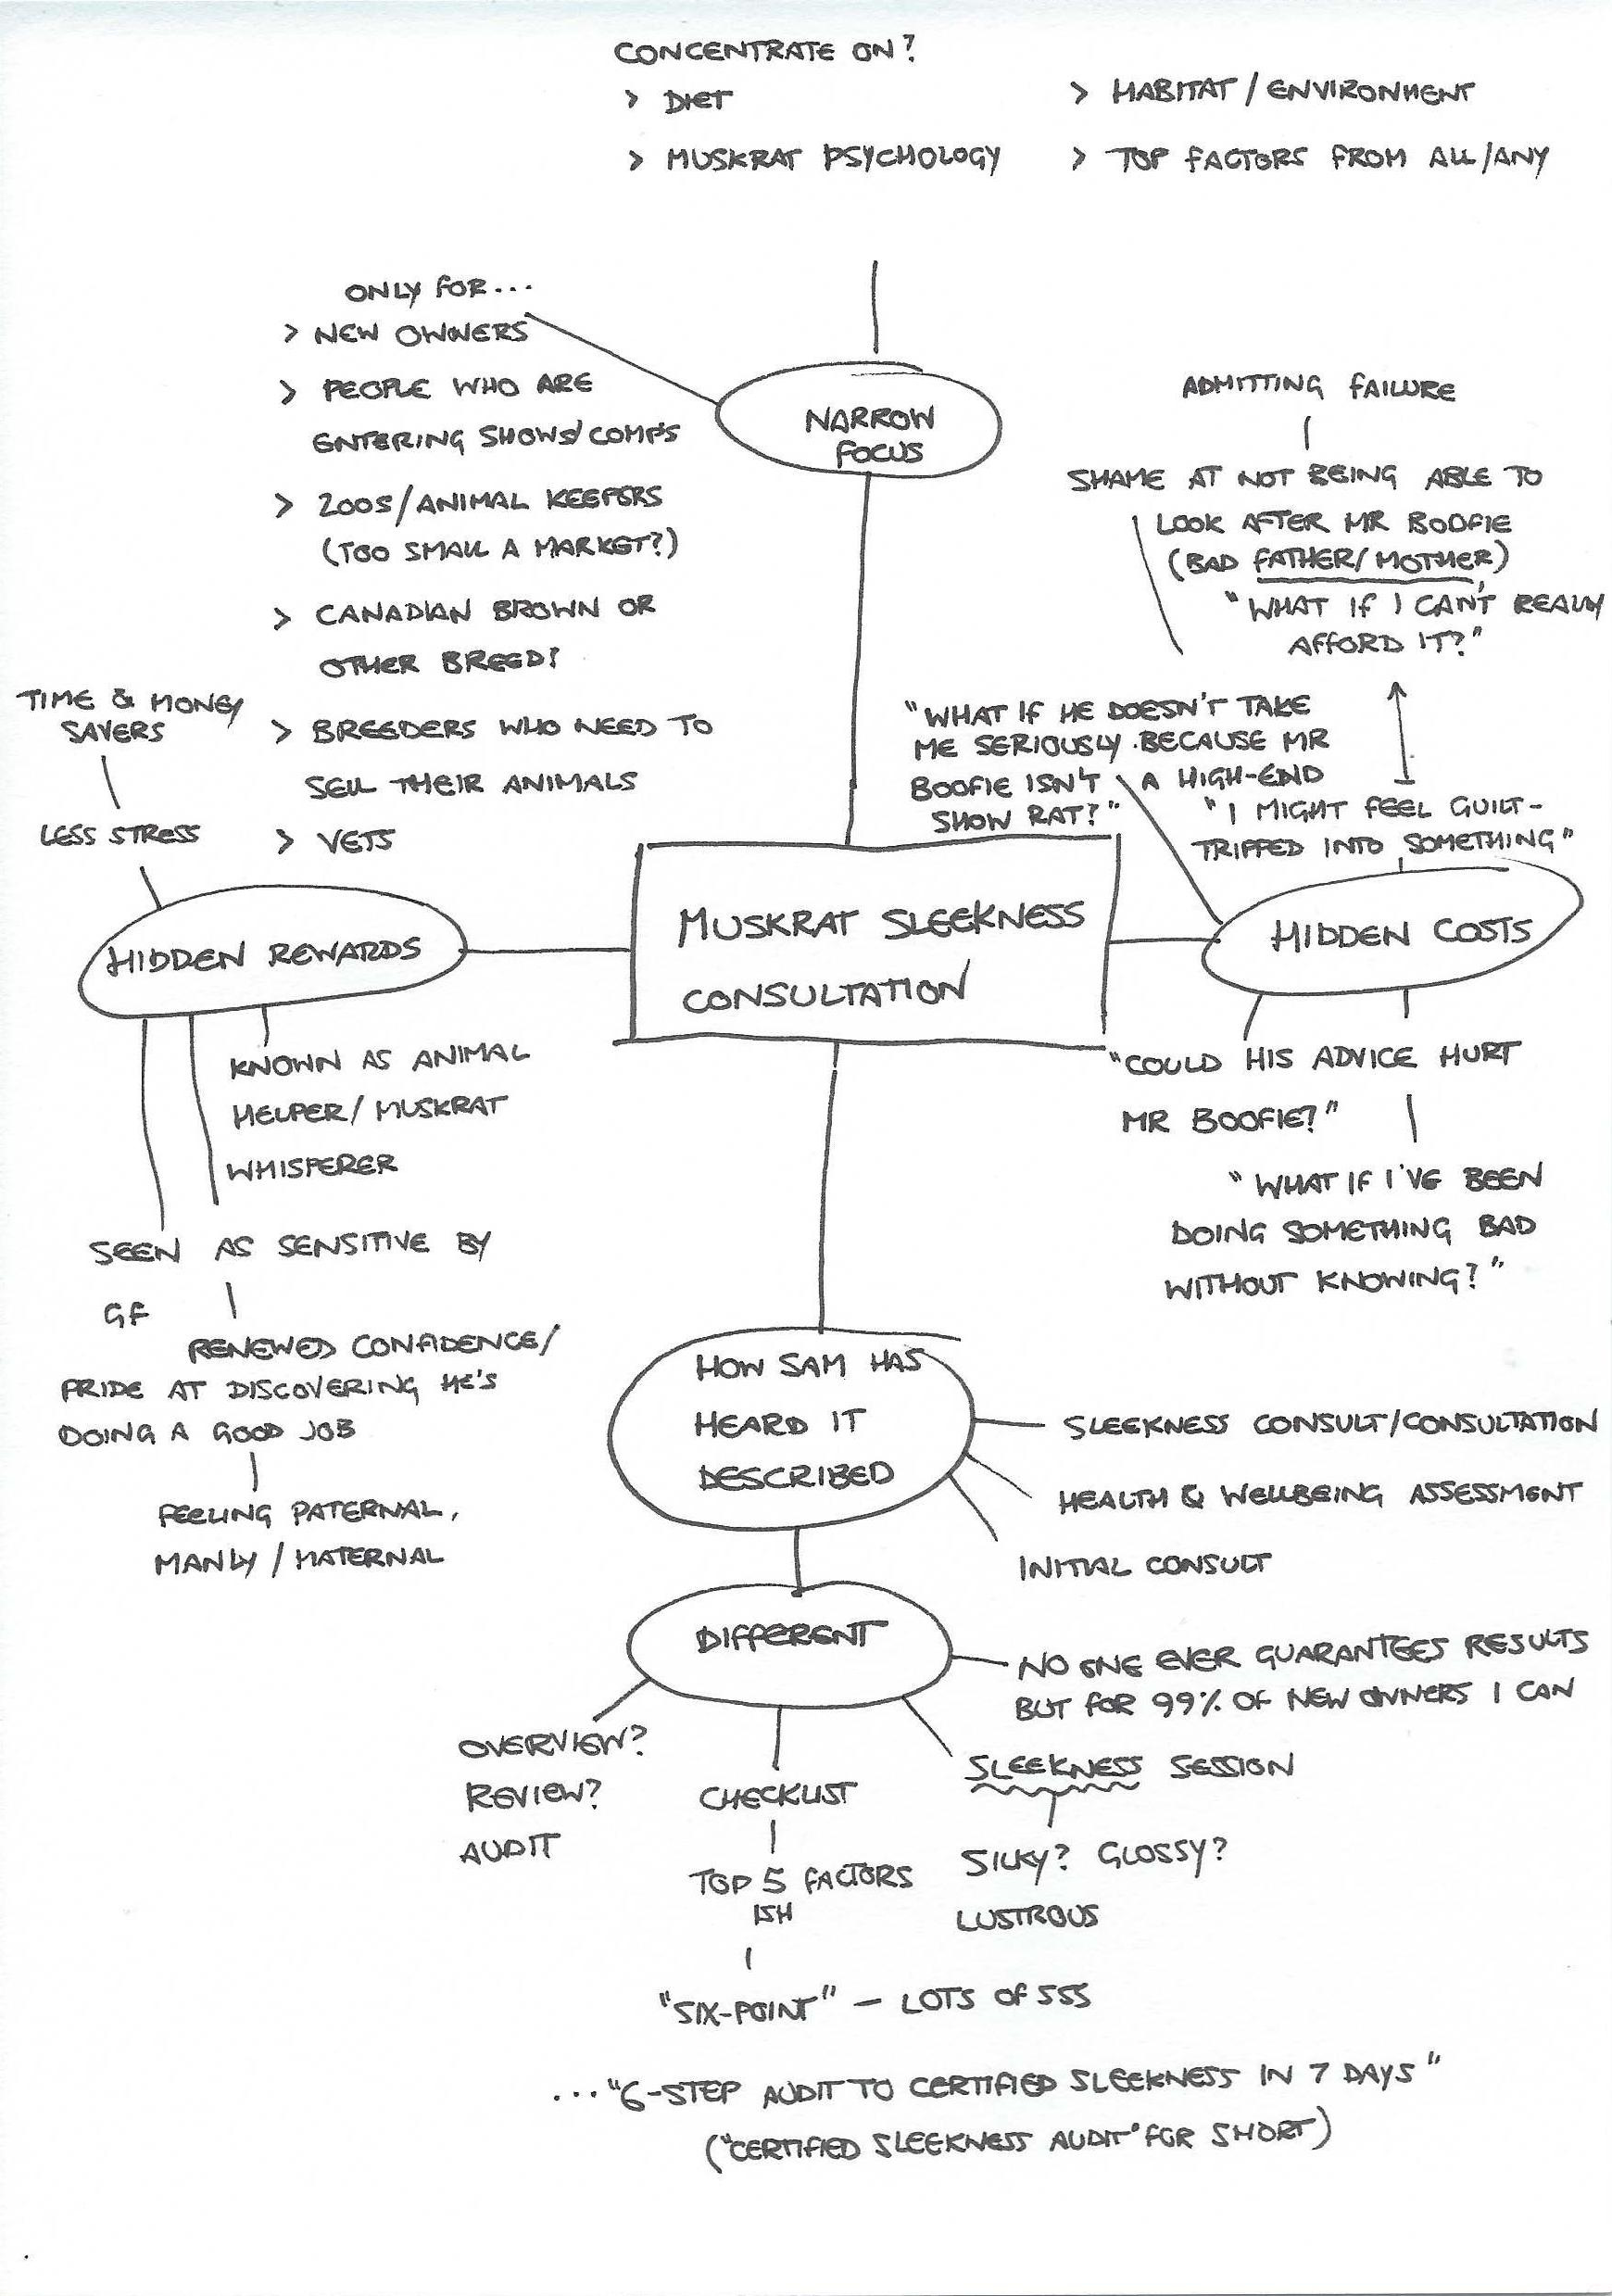 CONCENTRATE ON?
> DIET
> MUSKRAT PSYCHOLOGY
> HABITAT / ENVIRONMENT
> TOP FACTORS FROM ALL/ANY
ONLY FOR...
> NEW OWNERS
> PEOPLE WHO ARE
ENTERING SHOWS/COMPS
> ZOOS/ANIMAL KEEPERS
(TOO SMALL A MARKET?)
> CANADIAN BROWN OR
OTHER BREED?
> BREEDERS WHO NEED TO
SELL THEIR ANIMALS
> VETS
NARROW
FOCUS
ADMITTING FAILURE
SHAME AT NOT BEING ABLE TO
LOOK AFTER MR BOOFIE
(BAD FATHER/MOTHER)
"WHAT IF I CAN'T REALLY
AFFORD IT?"
"WHAT IF HE DOESN'T TAKE
ME SERIOUSLY BECAUSE MR
BOOFIE ISN'T A HIGH-END
SHOW RAT?"
"I MIGHT FEEL GUILT-
TRIPPED INTO SOMETHING"
TIME & MONEY
SAVERS
LESS STRESS
HIDDEN REWARDS
MUSKRAT SLEEKNESS
CONSULTATION
HIDDEN COSTS
KNOWN AS ANIMAL
HELPER/MUSKRAT
WHISPERER
SEEN AS SENSITIVE BY
GF
RENEWED CONFIDENCE/
PRIDE AT DISCOVERING HE'S
DOING A GOOD JOB
FEELING PATERNAL,
MANLY / MATERNAL
"COULD HIS ADVICE HURT
MR BOOFIE?"
"WHAT IF I'VE BEEN
DOING SOMETHING BAD
WITHOUT KNOWING?"
HOW SAM HAS
HEARD IT
DESCRIBED
SLEEKNESS CONSULT/CONSULTATION
HEALTH & WELLBEING ASSESSMENT
INITIAL CONSULT
DIFFERENT
NO ONE EVER GUARANTEES RESULTS
BUT FOR 99% OF NEW OWNERS I CAN
OVERVIEW?
REVIEW?
AUDIT
CHECKLIST
TOP 5 FACTORS
ISH
SLEEKNESS SESSION
SILKY? GLOSSY?
LUSTROUS
"SIX-POINT" – LOTS OF SSS
..."6-STEP AUDIT TO CERTIFIED SLEEKNESS IN 7 DAYS"
("CERTIFIED SLEEKNESS AUDIT" FOR SHORT)